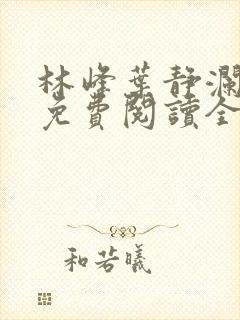 林峰葉静瀾
免費閱讀全
和若曦